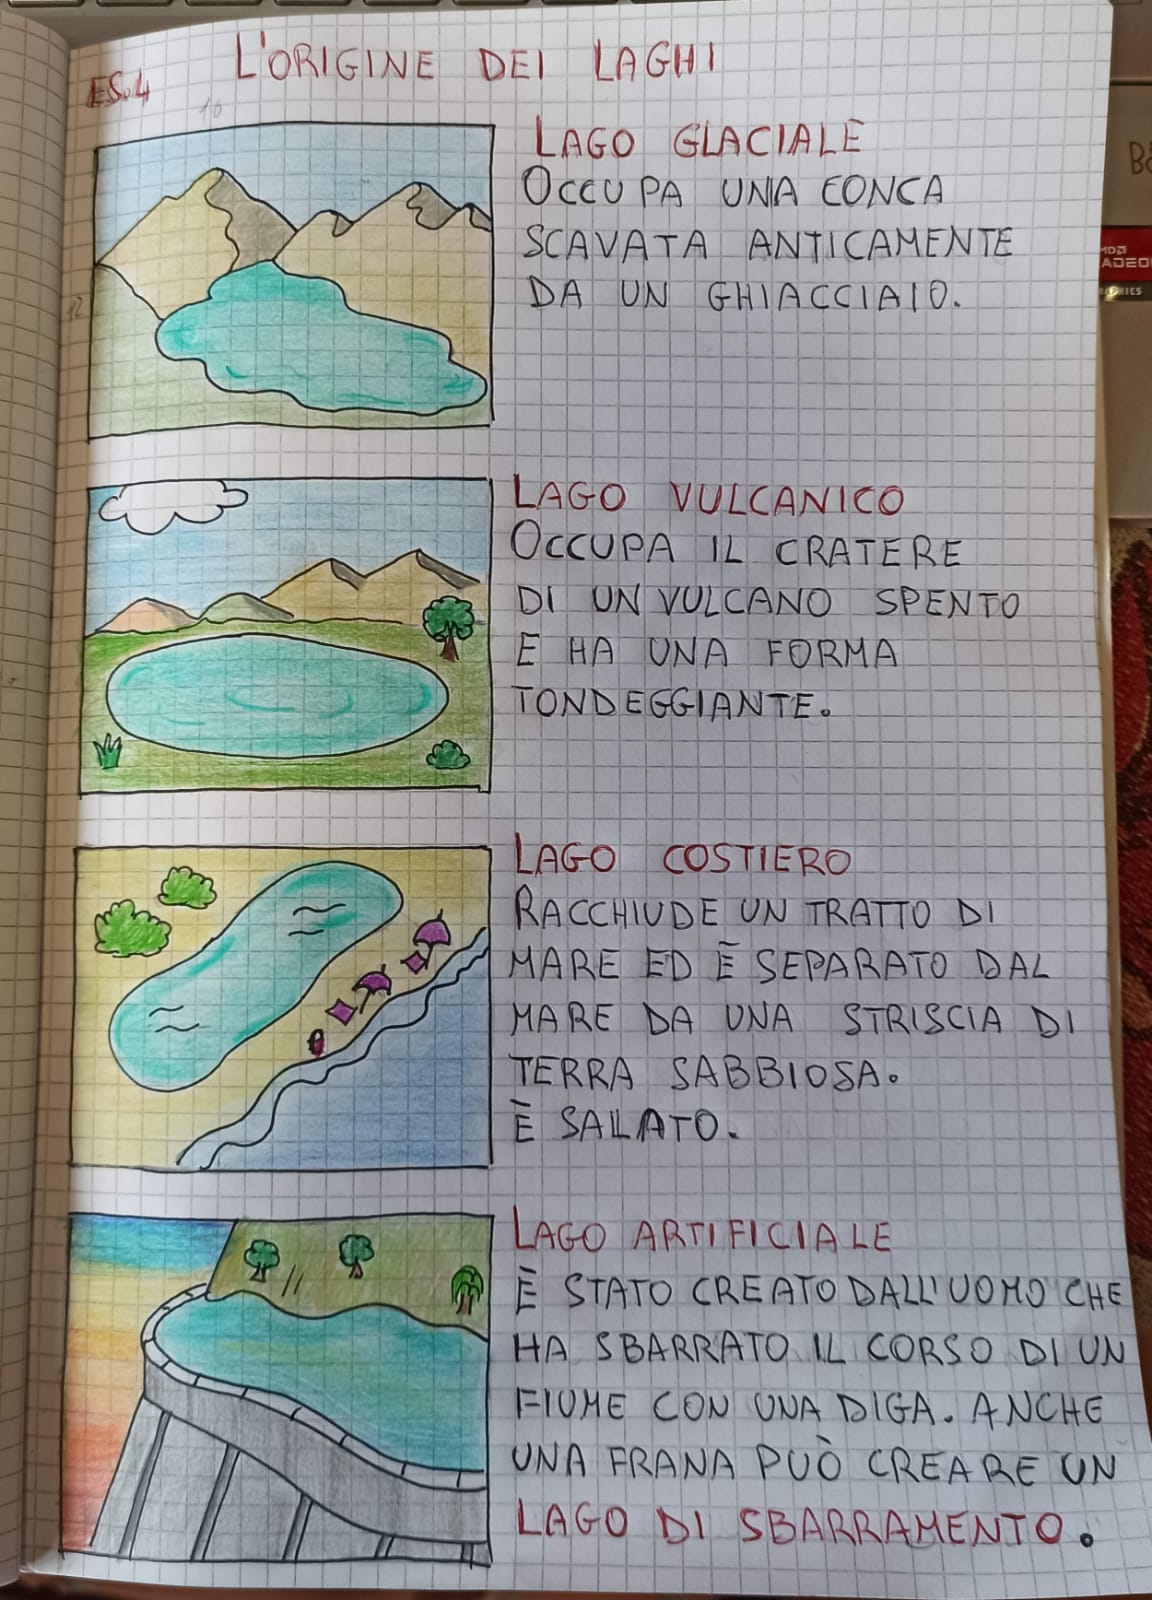 L'ORIGINE DEI LAGHI
ES.4
10
12
LAGO GLACIALE
OCCUPA UNA CONCA
SCAVATA ANTICAMENTE
DA UN GHIACCIAIO.
LAGO VULCANICO
OCCUPA IL CRATERE
DI UN VULCANO SPENTO
E HA UNA FORMA
TONDEGGIANTE.
LAGO COSTIERO
RACCHIUDE UN TRATTO DI
MARE ED È SEPARATO DAL
MARE DA UNA STRISCIA DI
TERRA SABBIOSA.
È SALATO.
LAGO ARTIFICIALE
È STATO CREATO DALL'UOMO CHE
HA SBARRATO IL CORSO DI UN
FIUME CON UNA DIGA. ANCHE
UNA FRANA PUÒ CREARE UN
LAGO DI SBARRAMENTO.